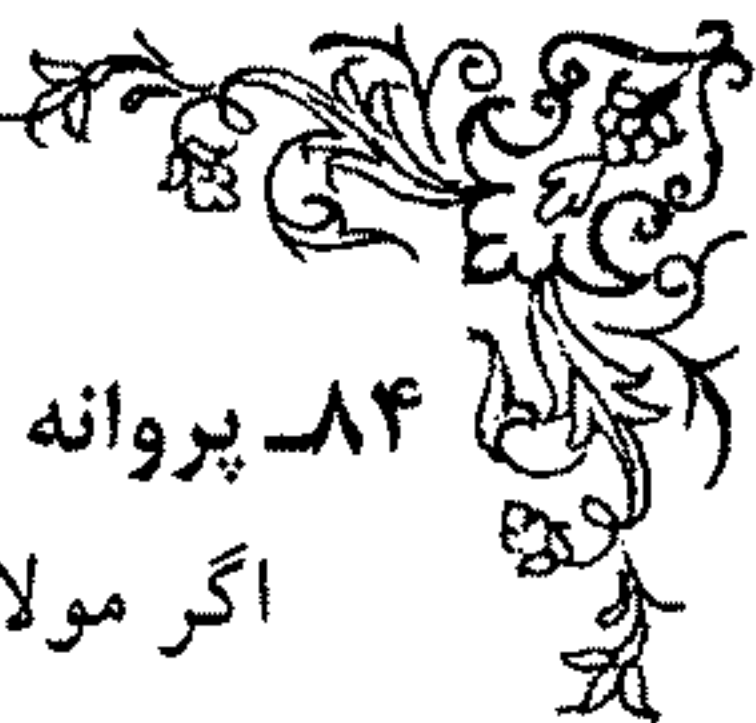 ۸۴ـ پروانه
اگر مولا